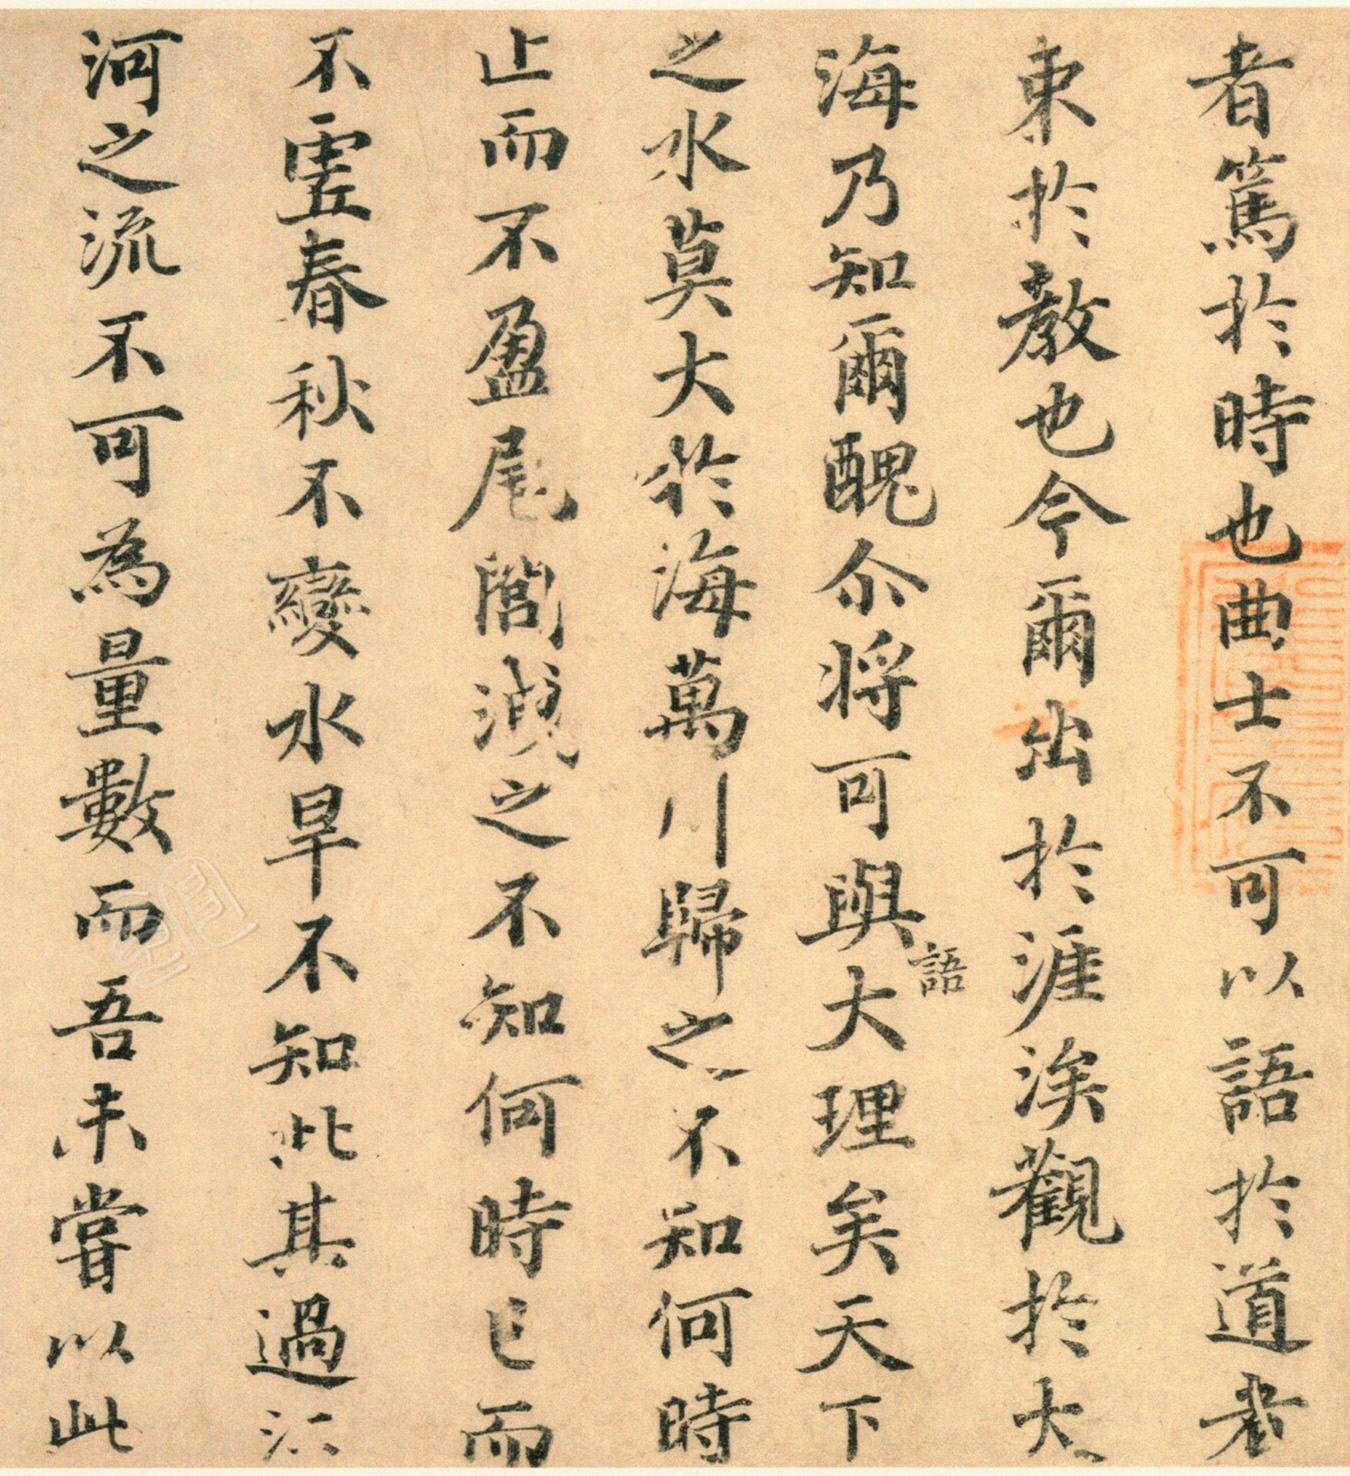 者篤於時也曲士不可以語於道者
束於教也今爾出於涯涘觀於大
海乃知爾醜尒将可與語大理矣天下
之水莫大於海萬川歸之不知何時
止而不盈尾閭洩之不知何時已而
不虛春秋不變水旱不知此其過江
河之流不可為量數而吾未嘗以此